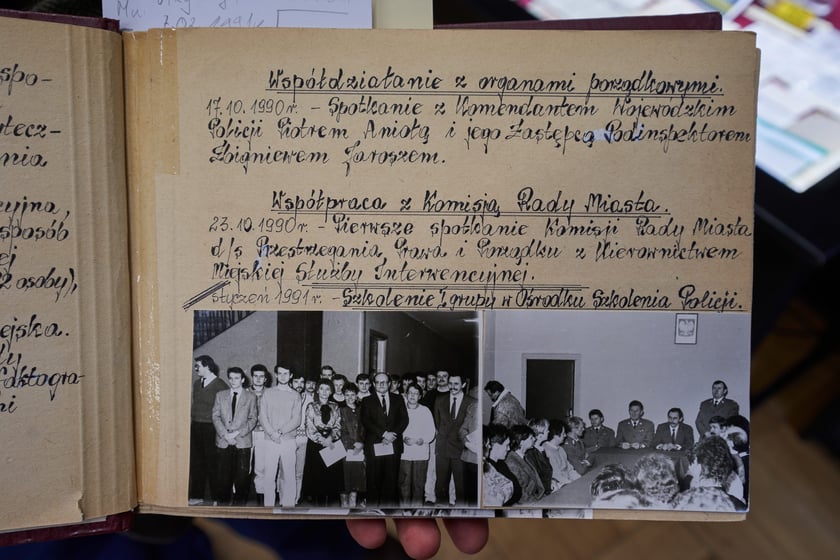 7.02.1991
spo-
tecz-
nia
cyjna,
sposób
ej
2 osoby),
ejska.
dy
faktogra-
Współdziałanie z organami porządkowymi.
17.10.1990 r. - Spotkanie z Komendantem Wojewódzkim
Policji Piotrem Aniołą i jego Zastępcą Podinspektorem
Zbigniewem Jaroszem.
Współpraca z Komisją Rady Miasta.
23.10.1990 r. - Pierwsze spotkanie Komisji Rady Miasta
d/s Przestrzegania Prawa i Porządku z Kierownictwem
Miejskiej Służby Interwencyjnej.
styczeń 1991 r. - Szkolenie I grupy w Ośrodku Szkolenia Policji.